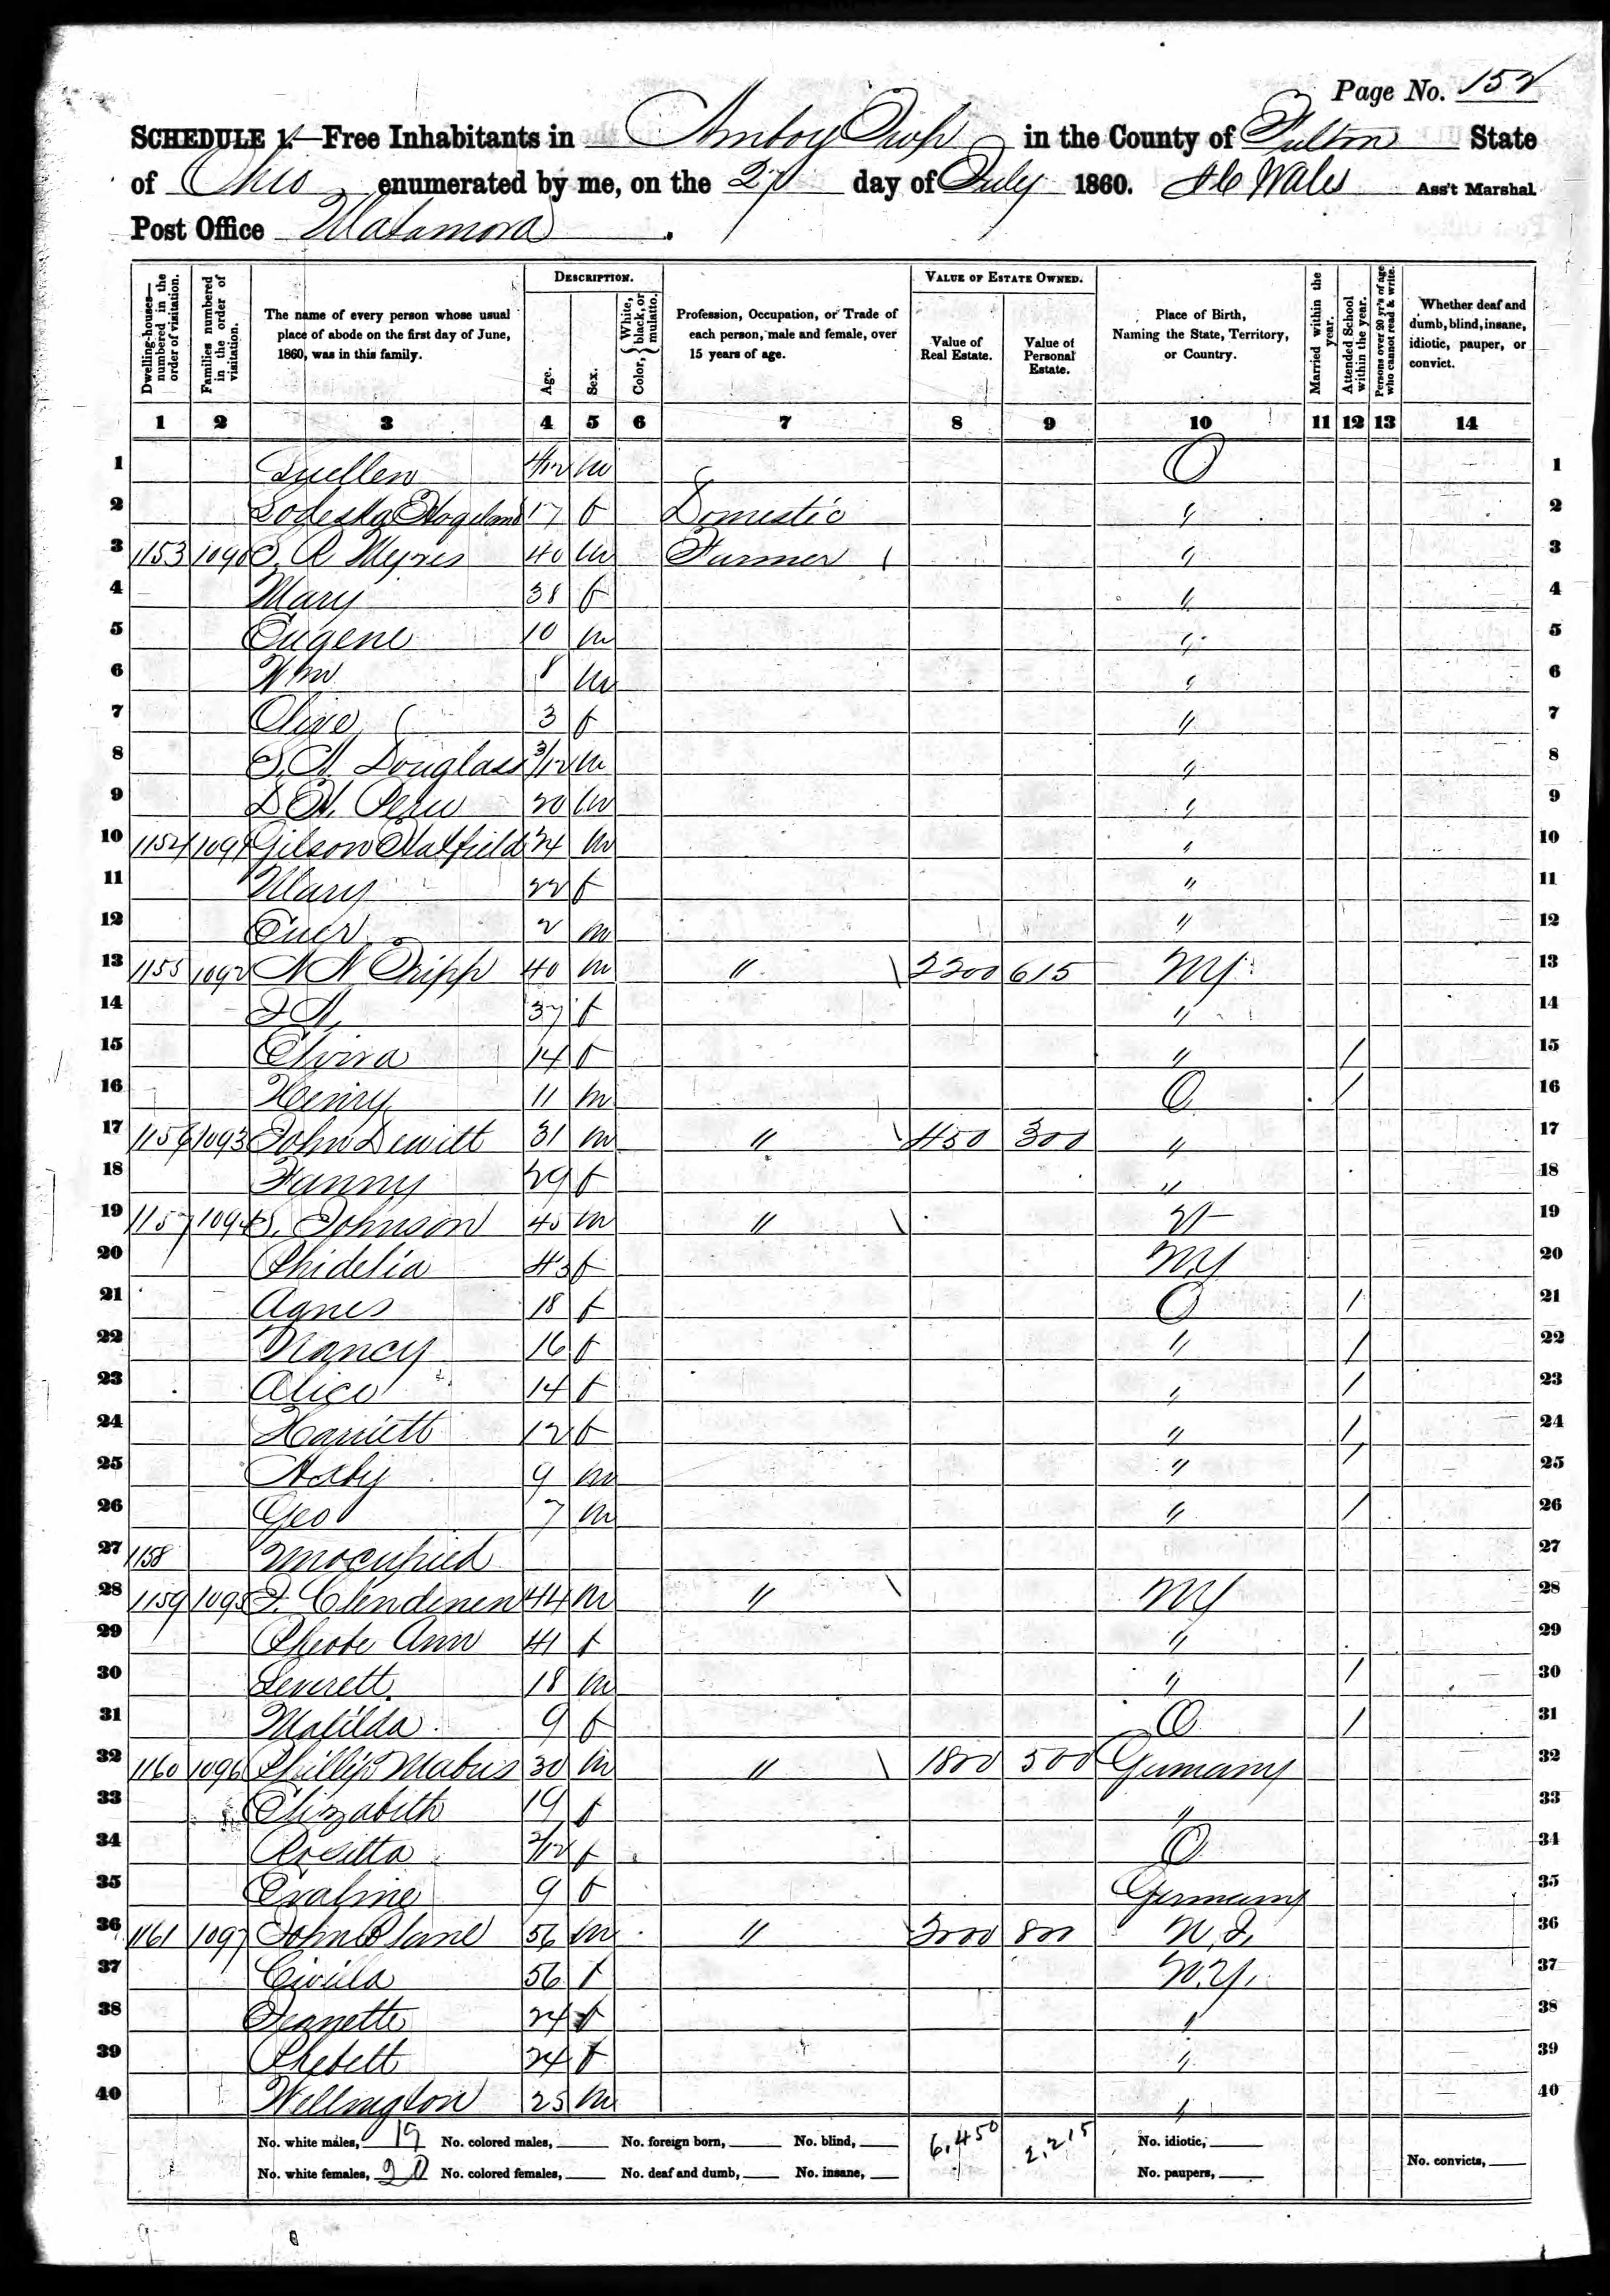 Page No. 152
SCHEDULE 1.—Free Inhabitants in Amboy Twp in the County of Fulton State
of Ohio enumerated by me, on the 27 day of July 1860. Wales Ass't Marshal.
Post Office Matamora.
Dwelling-houses—numbered in the order of visitation.
Families numbered in the order of visitation.
The name of every person whose usual place of abode on the first day of June, 1860, was in this family.
DESCRIPTION.
Age.
Sex.
Color, { White, black, or mulatto.
Profession, Occupation, or Trade of each person, male and female, over 15 years of age.
VALUE OF ESTATE OWNED.
Value of Real Estate.
Value of Personal Estate.
Place of Birth, Naming the State, Territory, or Country.
Married within the year.
Attended School within the year.
Persons over 20 yr's of age who cannot read & write.
Whether deaf and dumb, blind, insane, idiotic, pauper, or convict.
1 2 3 4 5 6 7 8 9 10 11 12 13 14
1 4/12 m O 1
2 17 f Domestic " 2
3 1153 1090 R Meyres 40 m Farmer \ " 3
4 Mary 38 f " 4
5 Eugene 10 m " 5
6 Wm 8 m " 6
7 Olive 3 f " 7
8 S. A. Douglass 3/12 m " 8
9 D H. 20 m " 9
10 1154 1091 Gilson Hatfield 24 m " 10
11 Mary 22 f " 11
12 2 m " 12
13 1155 1092 N Tripp 40 m " \ 2200 615 NY 13
14 37 f " 14
15 Elvira 14 f " / 15
16 Henry 11 m O / 16
17 1156 1093 John Dewitt 31 m " \ 450 300 " 17
18 Fanny 29 f " 18
19 1157 1094 Johnson 45 m " \ Vt 19
20 Phidelia 43 f N.Y 20
21 Agnes 18 f O / 21
22 Nancy 16 f " / 22
23 Alice 14 f " / 23
24 Harriett 12 f " / 24
25 9 m " / 25
26 Geo 7 m " / 26
27 1158 Unocupied 27
28 1159 1095 Clendenen 44 m " \ NY 28
29 Phebe Ann 41 f " 29
30 Leverett 18 m " / 30
31 Matilda 9 f O / 31
32 1160 1096 Phillip Mabus 30 m " \ 1800 500 Germany 32
33 Elizabeth 19 f " 33
34 Rositta 2/12 f O 34
35 Evaline 9 f Germany 35
36 1161 1097 John Plane 56 m " 2000 800 N.J. 36
37 Civilla 56 f N.Y. 37
38 Jeanette 24 f " 38
39 Phebett 24 f " 39
40 Wellington 25 m " 40
No. white males, 19 No. colored males, No. foreign born, No. blind, 6,450 2,215 No. idiotic,
No. white females, 20 No. colored females, No. deaf and dumb, No. insane, No. paupers, No. convicts,